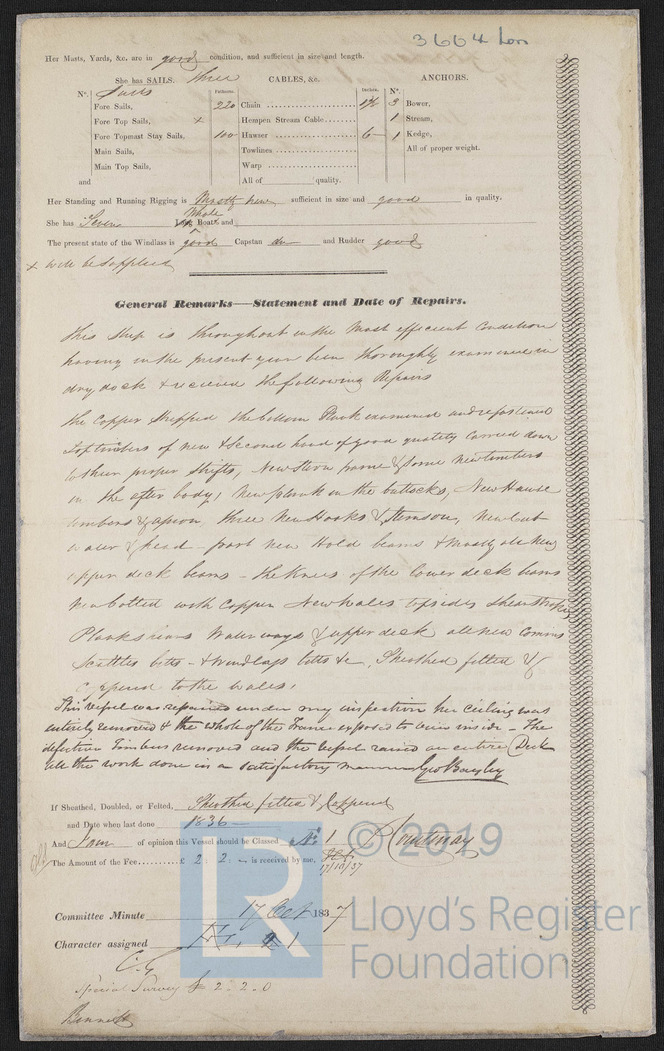 3664 Lon
Her Masts, Yards, &c. are in good condition, and sufficient in size and length.
She has SAILS. three CABLES, &c. ANCHORS.
N°. Suits Fathoms. Inches. N°.
Fore Sails, 220 Chain 3 Bower,
Fore Top Sails, x Hempen Stream Cable 1 Stream,
Fore Topmast Stay Sails, 100 Hawser 6 1 Kedge,
Main Sails, Towlines All of proper weight.
Main Top Sails, Warp
and All of quality.
Her Standing and Running Rigging is Mostly new sufficient in size and good in quality.
She has Seven Whale Long Boats and
The present state of the Windlass is good Capstan do and Rudder good
x will be supplied
General Remarks—Statement and Date of Repairs.
This Ship is throughout in the most efficient Condition
having in the present year been thoroughly examined in
dry dock & received the following Repairs
The Copper Stripped the bottom Plank examined and refastened
Toptimbers of new & second hand of good quality carried down
to their proper Shifts, New Stern frame & some New timbers
in the after body, New plank in the buttocks, New Hawse
timbers & apron, three New Hooks & Stemson, New Cut
water & head - part new Hold beams & mostly all New
upper deck beams - the Knees of the lower deck beams
New bolted with Copper New Wales topsides Shearstrakes
Planksheers Waterways & upper deck all new Comings
Scuttles bitts - & windlass bitts &c, Sheathed felted &
Coppered to the Wales,
This vessel was repaired under my inspection her Ceiling was
entirely removed & the whole of the Frame exposed to view inside - The
defective Timbers removed and the Vessel raised an entire Deck
all the work done in a satisfactory manner Geo Bayley
If Sheathed, Doubled, or Felted, Sheathed felted & Coppered
and Date when last done 1836
And I am of opinion this Vessel should be Classed 1 Courtenay
The Amount of the Fee £ 2 : 2 : - is received by me,
17/10/37
Committee Minute 17 Oct 1837
Character assigned 1
Special Survey £ 2 . 2 . 0
Bennett
© 2019
Lloyd's Register
Foundation
LR